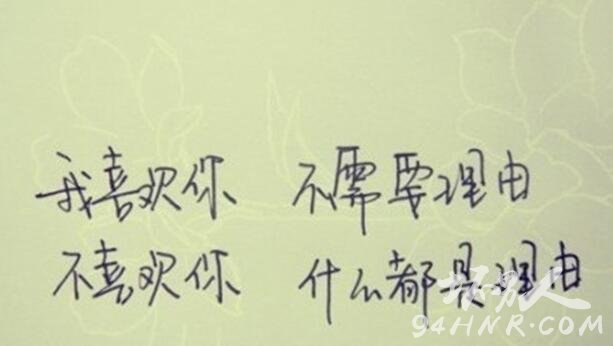 我喜欢你 不需要理由
不喜欢你 什么都是理由
坏男人
94HNR.COM